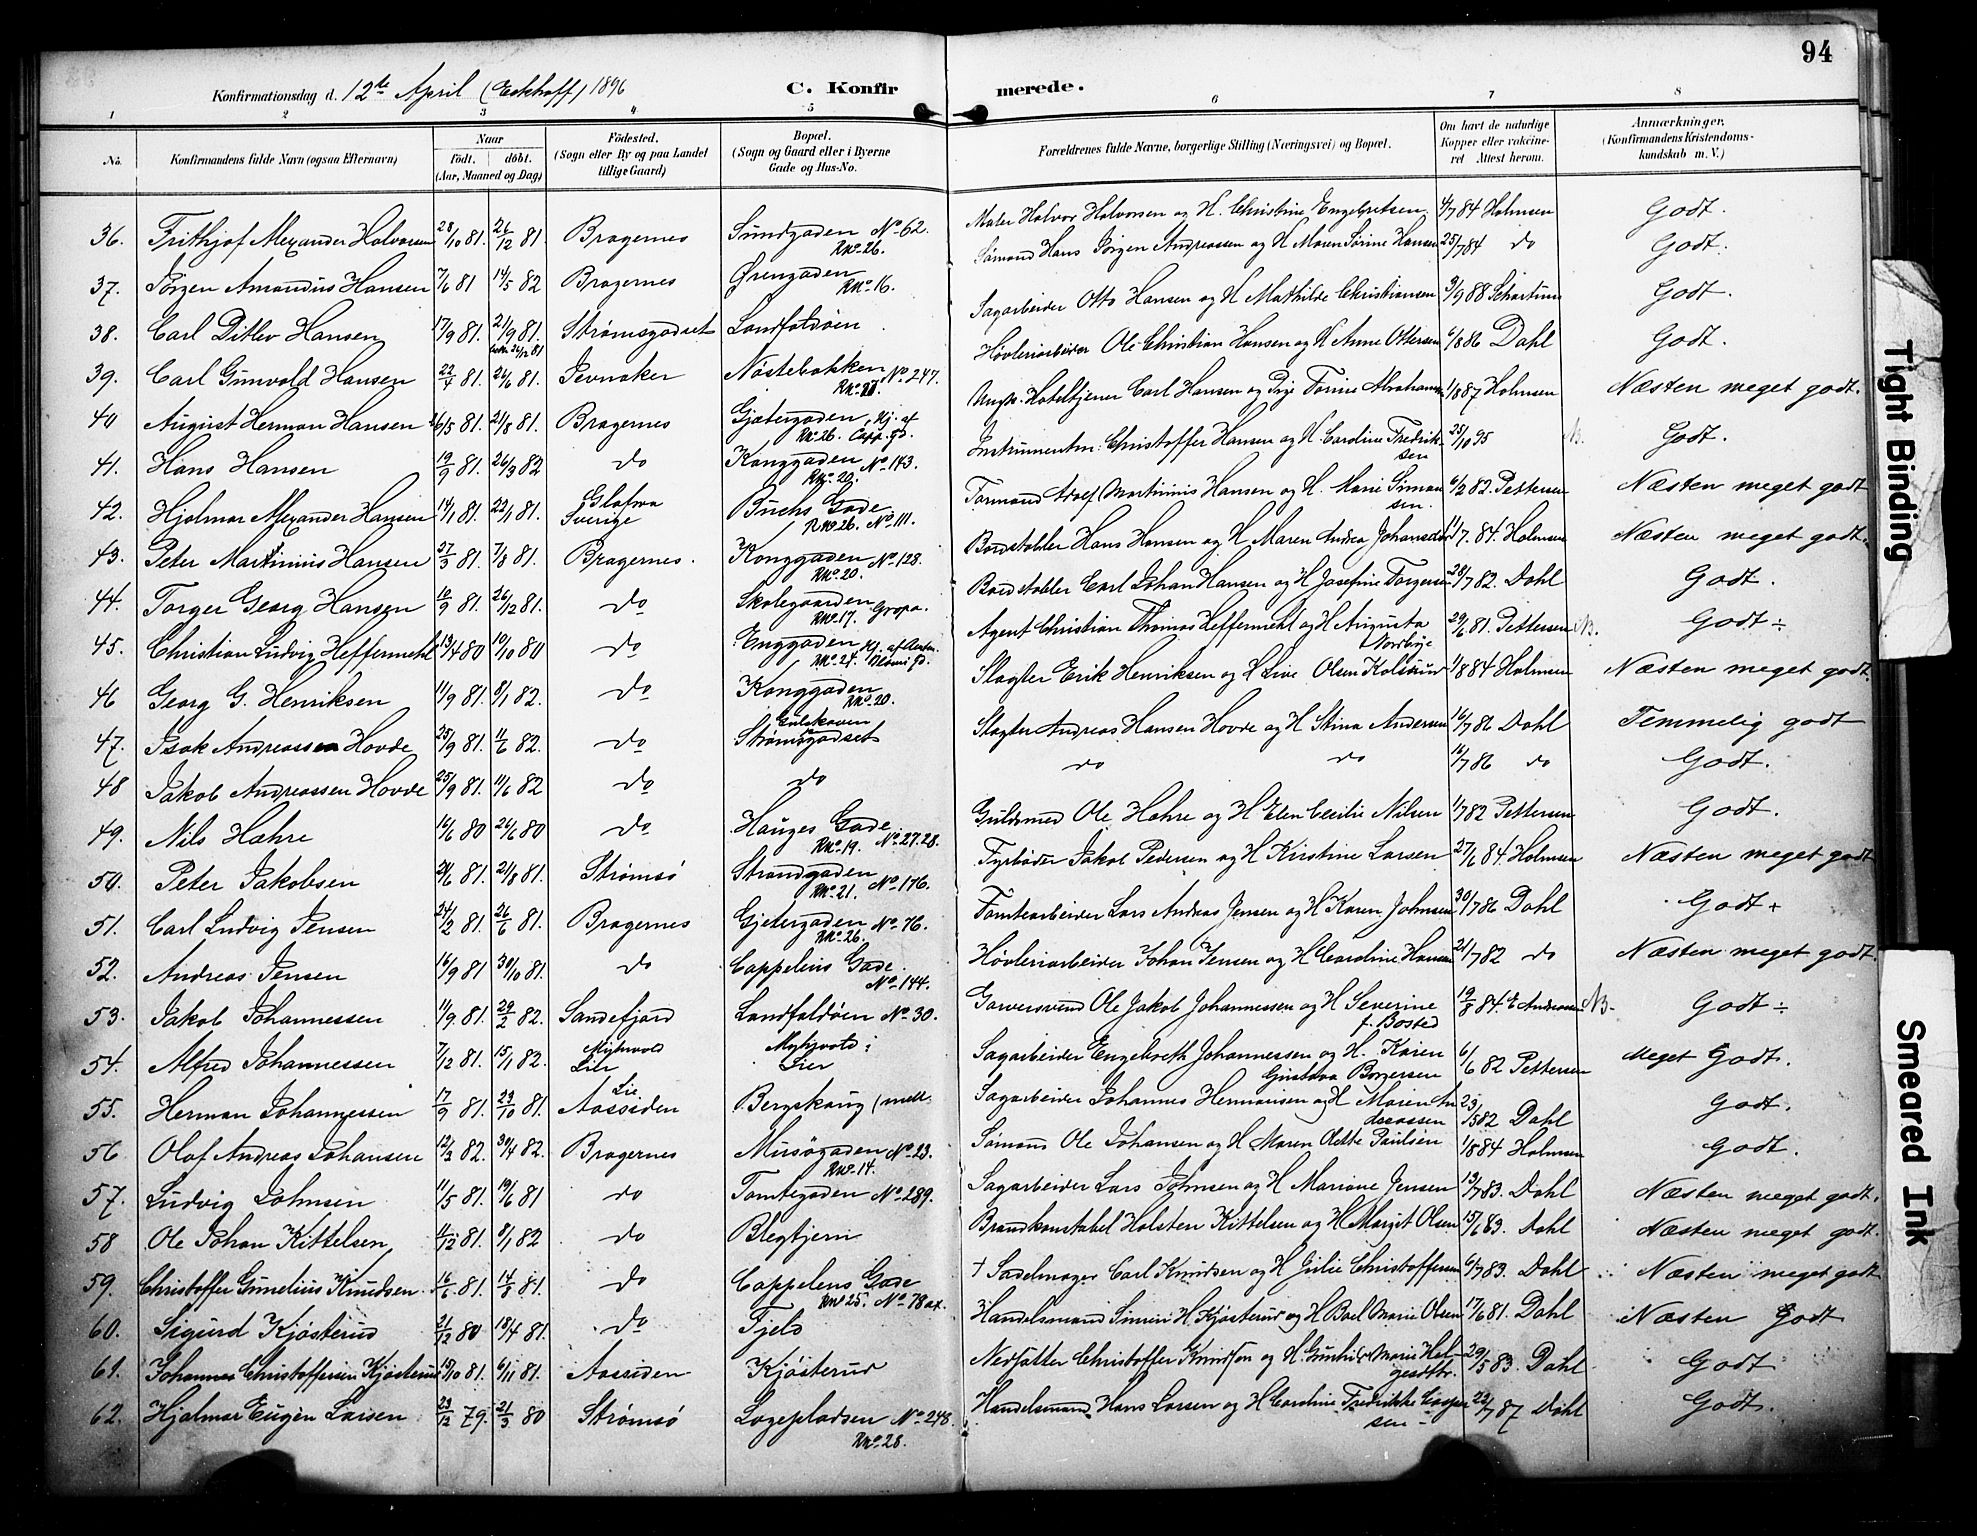 94
Konfirmationsdag d. 12te April (Eckhoff) 1896 C. Konfirmerede.
1 2 3 4 5 6 7 8
No. Konfirmandens fulde Navn (ogsaa Efternavn) Naar født. døbt. (Aar, Maaned og Dag) Födested. (Sogn eller By og paa Landet tillige Gaard) Bopæl. (Sogn og Gaard eller i Byerne Gade og Hus-No. Forældrenes fulde Navne, borgerlige Stilling (Næringsvei) og Bopæl. Om havt de naturlige Kopper eller vakcineret Attest herom. Anmærkninger. (Konfirmandens Kristendomskundskab m. V.)
36. Frithjof Alexander Halvorsen 28/10 81. 26/12 81. Bragernes Sundgaden No. 62. Rno. 26. Maler Halvor Halvorsen og H. Christine Engebretsen 4/7 84 Holmsen Godt.
37. Jörgen Amandus Hansen 7/6 81 14/5 82 Bragernes Örengaden Rno. 16. Sømand Hans Jörgen Andreassen og H Maren Sørine Hansen 25/7 84 do Godt.
38. Carl Ditlev Hansen 17/9 81. 21/9 81. Strömsgodset Landfaldöen Sagarbeider Otto Hansen og H Mathilde Christiansen 3/9 88 Schartum Godt.
39. Carl Gunvald Hansen 22/4 81. 26/6 81. Jevnaker Nöstebakken No. 247. Høvleriarbeider Ole Christian Hansen og H Anne Ottersen 6/8 86 Dahl Godt.
40 August Herman Hansen 26/5 81. 21/8 81. Bragernes Gjetergaden Hj. af Capp. gd. Rno. 26. Ungk. Hoteltjener Carl Hansen og Pige Torine Abrahamsen 1/8 87 Holmsen Næsten meget godt.
41. Hans Hansen 19/9 81. 26/3 82 do Konggaden No. 143. Rno. 20. Instrumentm: Christoffer Hansen og H Caroline Fredriksen 25/10 95 N. Godt.
42. Hjalmar Alexander Hansen 14/1 81. 23/1 81. Glafva Sverige Buchs Gade Rno 26. No. 111. Formand Adolf Martinius Hansen og H. Marie Simonsen. 6/2 82. Pettersen Næsten meget godt
43. Peter Martinius Hansen 27/3 81. 7/8 81. Bragernes. Konggaden No. 128. Rno. 20. Bordstabler Hans Hansen og H Maren Andrea Johansdatter 11/7 84. Holmsen Næsten meget godt.
44. Torger Georg Hansen 10/9 81. 26/12 81. do Skolegaarden Gropa. Rno. 17. Bordstabler Carl Johan Hansen og H Josefine Torgersen 28/7 82. Dahl Godt.
45. Christian Ludvig Heffermehl 13/4 80 10/10 80 do Enggaden Rno. 27. Agent Christian Thomas Heffermehl og H Augusta Nordbye 29/6 81. Pettersen N. Godt ÷
46 Georg G. Henriksen 11/9 81. 8/1 82. do Konggaden Rno. 20. Slagter Erik Henriksen og H Live Olsen Kolsrud 1/8 84 Holmsen Næsten meget godt.
47. Isak Andreassen Hovde 25/9 81. 11/6 82. do Gulskoven Strömsgodset Slagter Andreas Hansen Hovde og H Stina Andersen 16/7 86 Dahl Temmelig godt
48 Jakob Andreassen Hovde 25/9 81. 11/6 82 do do do do 16/7 86 do Godt.
49. Nils Hæhre 16/6 80 26/6 80 do Hauges Gade Rno. 19. No. 27.28. Guldsmed Ole Hæhre og H Elen Cecilie Nilsen 1/7 82 Pettersen Godt.
50. Peter Jakobsen 21/6 81. 21/8 81. Strömsö Strandgaden Rno. 21. No. 176. Fyrböder Jakob Pedersen og H Kristine Larsen 27/6 84. Holmsen Næsten meget godt
51. Carl Ludvig Jensen 24/2 81. 26/6 81. Bragernes Gjetergaden No. 76. Rno. 26. Tomtearbeider Lars Andreas Jensen og H Karen Johnsen 30/7 86 Dahl Godt +
52. Andreas Jensen 16/9 81 30/10 81. do Cappelens Gade No. 144. Høvleriarbeider Johan Jensen og H Caroline Hansen 21/7 82 do Næsten meget godt.
53. Jakob Johannessen 11/9 81. 29/2 82. Sandefjord Landfaldöen No. 30. Garversvend Ole Jakob Johannessen og H Severine f. Bosted 19/8 84. E Andreasen N. Godt ÷
54. Alfred Johannessen 7/12 81. 15/1 82. Myhrvold Lier Myhrvold i Lier Sagarbeider Engebreth Johannessen og H. Karen Gustava Borgersen 6/6 82 Pettersen Meget Godt.
55. Herman Johannessen 17/9 81. 23/10 81. Lie. Aassiden Bergskaug Sagarbeider Johannes Hermansen og H Maren Andreassen 23/5 82 Dahl Godt.
56 Olaf Andreas Johansen 12/3 82. 30/4 82. Bragernes Musögaden No. 23. Rno. 14. Sömand Ole Johansen og H Maren Olette Paulsen 1/8 84 Holmsen Godt.
57. Ludvig Johnsen 11/5 81. 19/6 81 do Tomtegaden No. 289. Sagarbeider Lars Johnsen og H Mariane Jensen 13/7 83. Dahl Næsten meget godt.
58 Ole Johan Kittelsen 11/12 81. 8/1 82 do Blegtjern Brandkonstabel Holsten Kittelsen og H Margit Olsen 15/6 83. Dahl Næsten meget godt.
59. Christoffer Gunelius Knudsen 16/6 81. 14/8 81. do Cappelens Gade Rno 25. No. 78 Sadelmager Carl Knudsen og H Julie Christoffersen 6/7 83. Dahl Næsten meget godt
60. Sigurd Kjösterud 21/12 80 18/4 81. do Fjeld Handelsmand Simen H. Kjösterud og H Boel Marie Olsen 17/6 81. Dahl Næsten Godt
61. Johannes Christoffersen Kjösterud 15/10 81. 6/11 81. Aassiden Kjösterud Nedsætter Christoffer Knudsen og H. Gunhild Marie Helgesdtr. 29/5 83. Dahl Godt
62. Hjalmar Eugen Larsen 23/12 79. 21/3 80 Strömsö Logepladsen No. 248. Rno. 28. Handelsmand Hans Larsen og H Caroline Fredrikke Caspersen 22/7 87 Dahl Godt.
Tight Binding
Smeared Ink